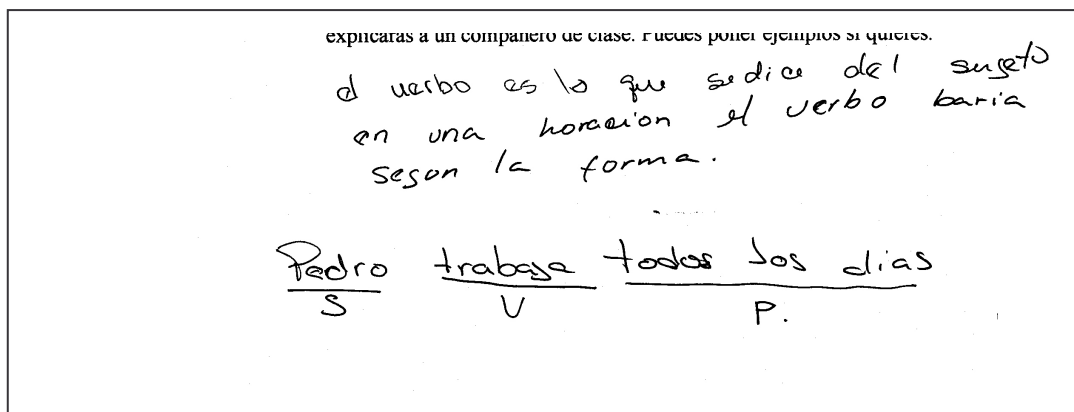 explicaras a un compañero de clase. Puedes poner ejemplos si quieres.
el verbo es lo que se dice del sugeto
en una horacion el verbo baria
segun la forma.
Pedro trabaja todos los dias
S V P.